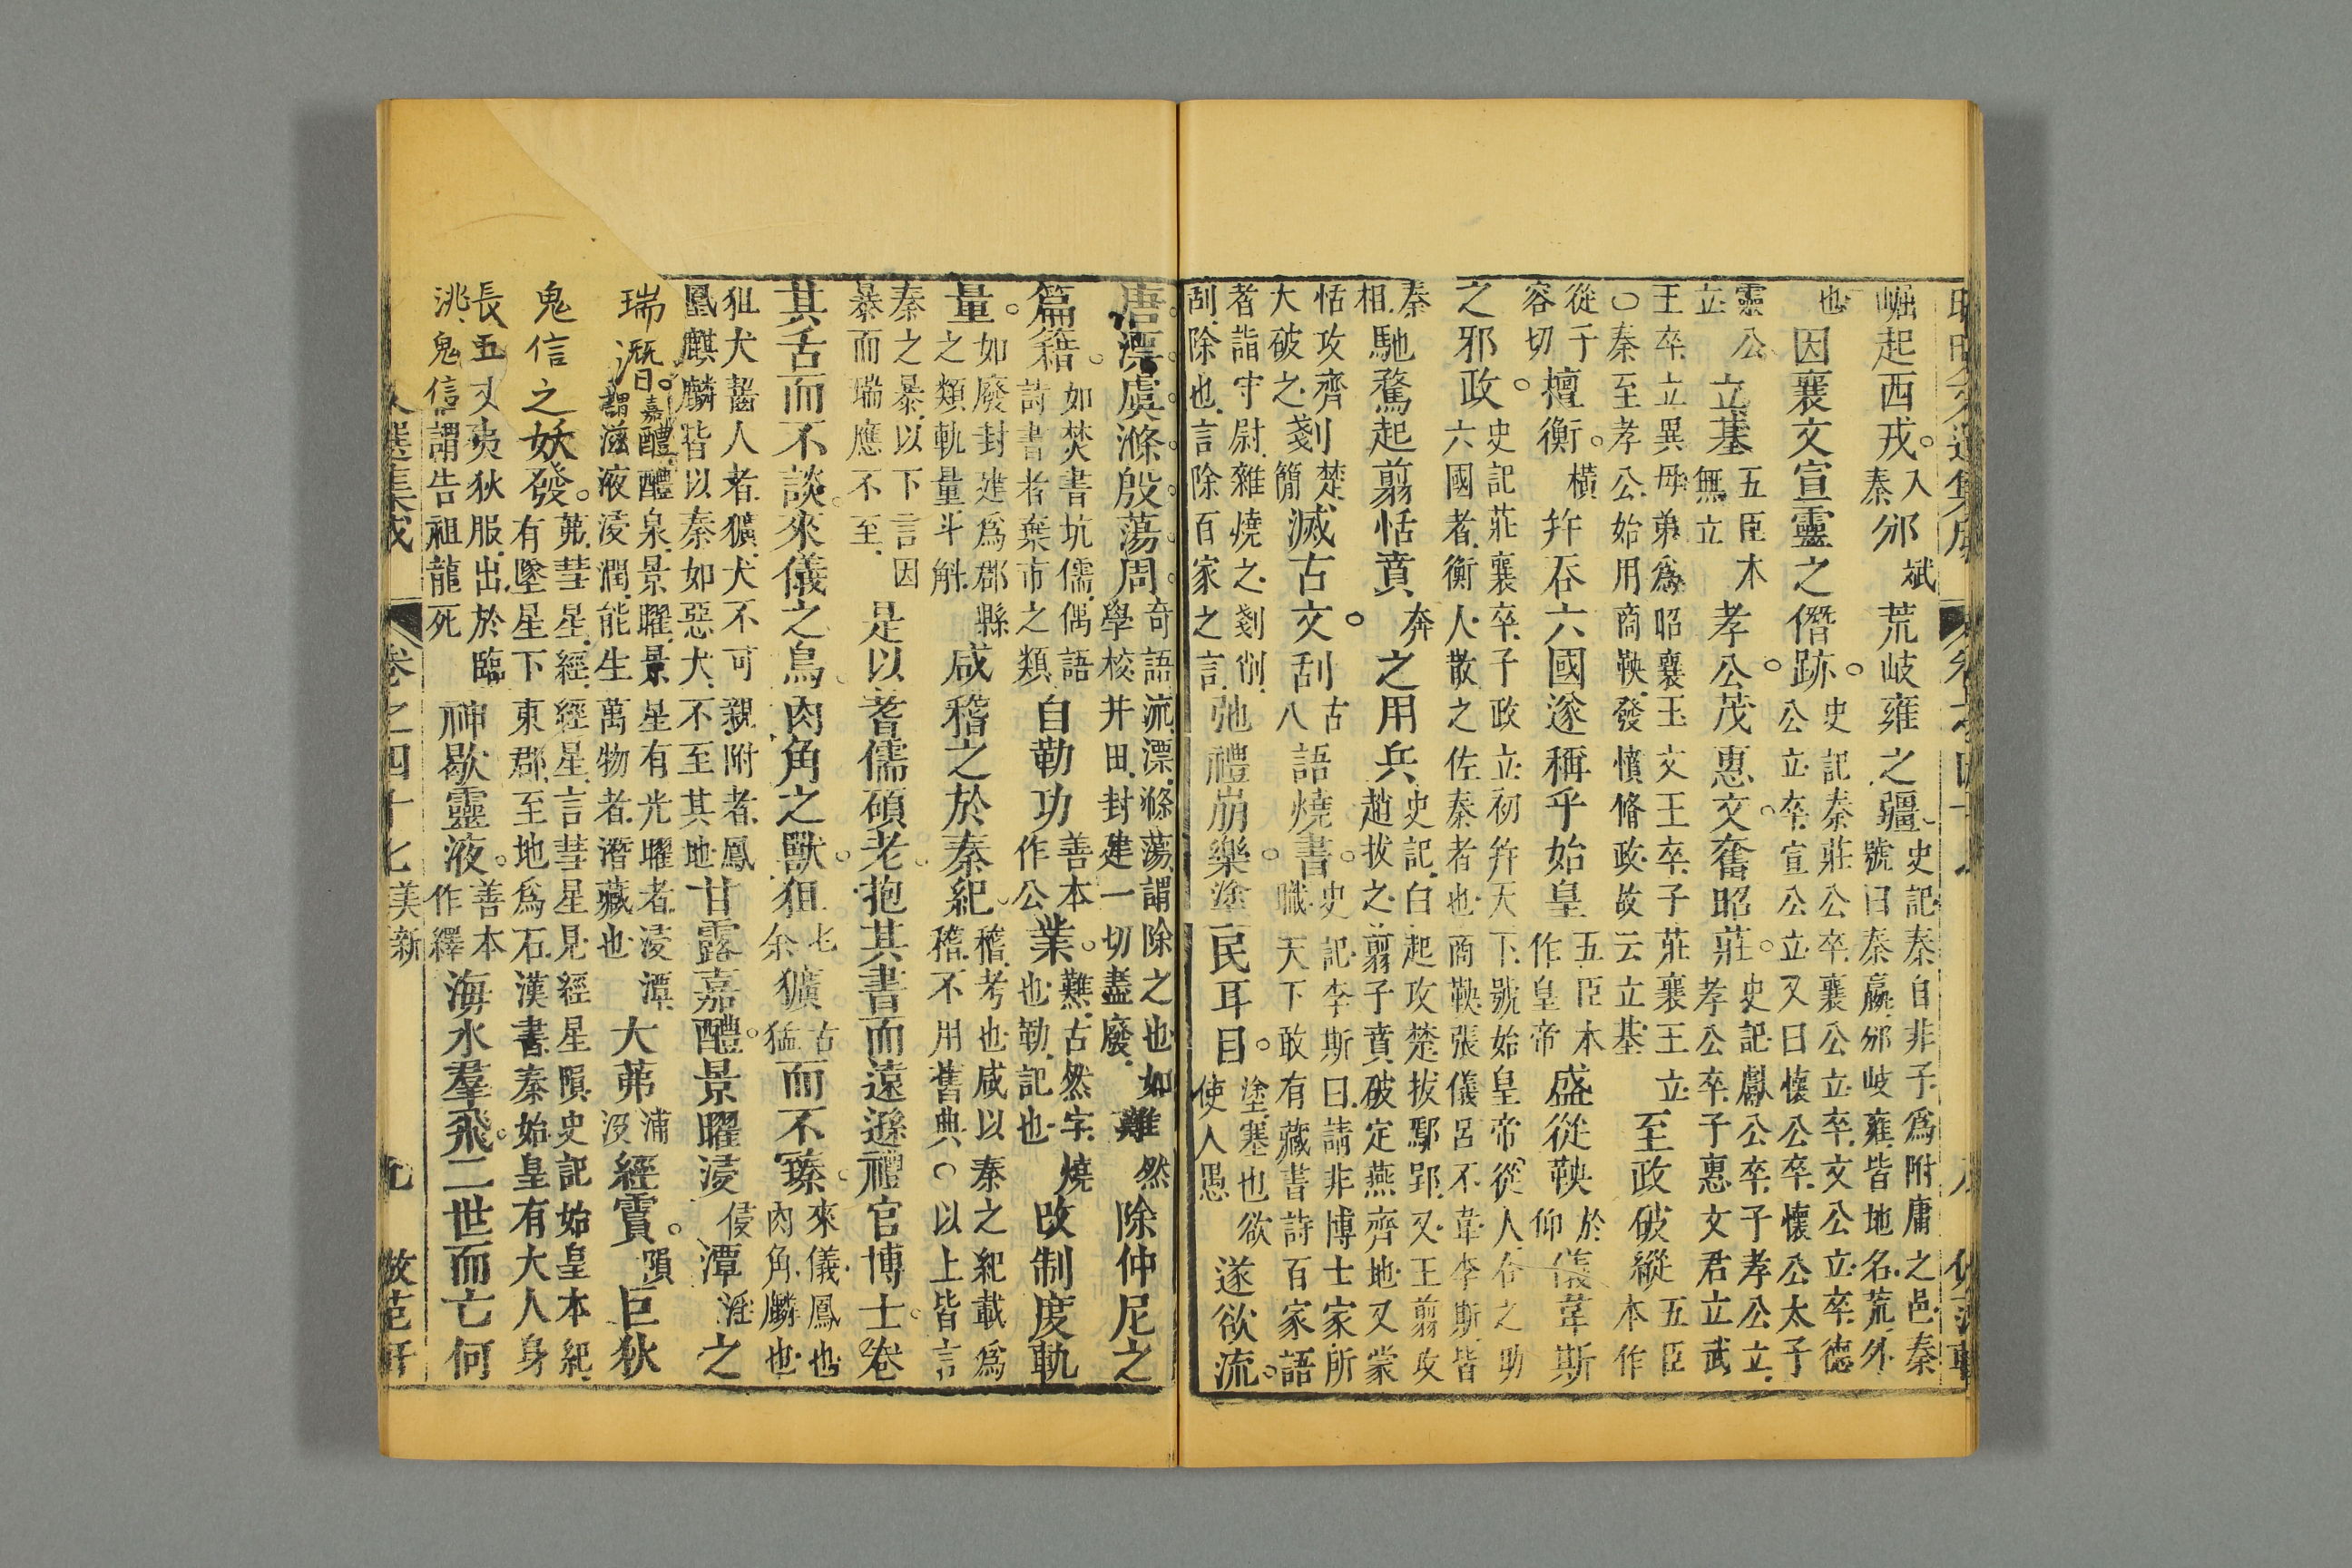 崛起西戎秦入邠斌荒岐雍之疆史記秦自非子爲附庸之邑秦
號曰秦嬴邠岐雍皆地名荒外
也因襄文宣靈之僭跡史記秦莊公卒襄公立卒文公立卒德
公立卒宣公立又曰懷公卒懷公太子
靈公立立基五臣木無立孝公茂惠文奮昭莊史記獻公卒子孝公立
孝公卒子惠文君立武
王卒立異母弟爲昭襄王文王卒子莊襄王立
○秦至孝公始用商鞅發憤脩政故云立基至政破縱五臣本作
從子容切橫衡橫幷吞六國遂稱乎始皇五臣木作皇帝盛從鞅於仰儀韋斯
之邪政史記莊襄卒子政立初幷天下號始皇帝從人合之助
六國者衡人散之佐秦者也商鞅張儀呂不韋李斯皆
秦相馳騖起翦恬賁奔之用兵史記白起攻楚拔鄢郢又王翦攻
趙拔之翦子賁破定燕齊地又蒙
恬攻齊大破之剗楚簡滅古文刮古八語燒書史記李斯曰請非博士家所
職天下敢有藏書詩百家語
者詣守尉雜燒之剗削
刮除也言除百家之言弛禮崩樂塗民耳目塗塞也欲使人愚遂欲流
唐漂虞滌殷蕩周奇語流漂滌蕩謂除之也如難然
學校井田封建一切盡廢除仲尼之
篇籍如焚書坑儒偶語詩書者棄市之類自勒功善本作公業難古然字燒也勒記也改制度軌
量如廢封建爲郡縣之類軌量斗斛咸稽之於秦紀稽考也咸以秦之紀載爲
稽不用舊典○以上皆言
秦之暴以下言因暴而瑞應不至是以耆儒碩老抱其書而遠遜禮官博士卷
其舌而不談來儀之鳥肉角之獸狙七余獷古猛而不臻來儀鳳也肉角麟也
狙犬齧人者獷犬不可親附者鳳
凰麒麟皆以秦如惡犬不至其地甘露嘉醴景曜浸侵潭淫之
瑞潛曰嘉醴醴泉景曜景星有光曜者浸潭
謂滋液浸潤能生萬物者潛藏也大茀浦沒經霣隕巨狄
鬼信之妖發茀彗星經經星言彗星見經星隕史記始皇本紀
有墜星下東郡至地爲石漢書秦始皇有大人身
長五丈夷狄服出於臨
洮鬼信謂告祖龍死神歇靈液善本作繹海水羣飛二世而亡何
選集成　卷之四十七　美新　九　倣范軒